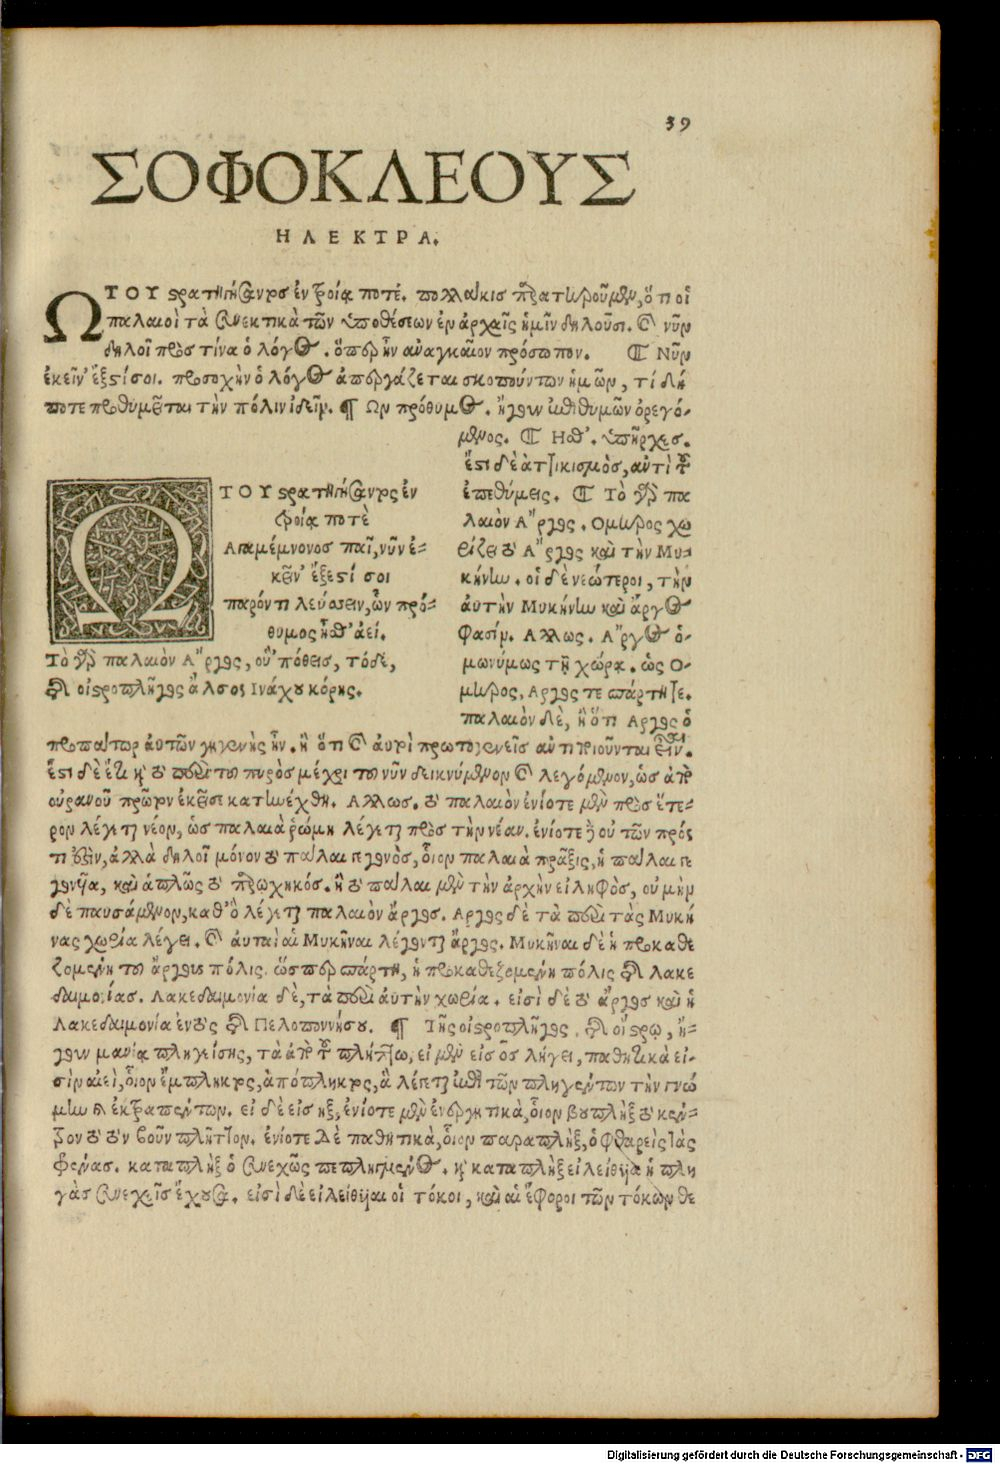 39
ΣΟΦΟΚΛΕΟΥΣ
ΗΛΕΚΤΡΑ.
Ω ΤΟΥ στρατηγήσαντος ἐν τροίᾳ ποτέ. πολλάκις παρατηροῦμεν, ὅτι οἱ
παλαιοὶ τὰ συνεκτικὰ τῶν ὑποθέσεων ἐν ἀρχαῖς ἡμῖν δηλοῦσι. καὶ νῦν
δηλοῖ πρὸς τίνα ὁ λόγος. ὅπερ ἦν ἀναγκαῖον πρόσωπον. ¶ Νῦν
ἐκεῖν' ἔξεστί σοι. προσοχὴν ὁ λόγος ἀπεργάζεται σκοπούντων ἡμῶν, τί δή
ποτε προθυμεῖται τὴν πόλιν ἰδεῖν. ¶ Ων πρόθυμος. ἤγουν ἐπιθυμῶν ὀρεγό-
μενος. ¶ Ησθ'. ὑπῆρχες.
ἔστι δὲ ἀττικισμὸς, αὐτὶ τοῦ
ἐπεθύμεις. ¶ Τὸ γὰρ πα
λαιὸν Ἄργος. Ομηρος χω
ρίζει τὸ Ἄργος καὶ τὴν Μυ-
κήνην. οἱ δὲ νεώτεροι, τὴν
αὐτὴν Μυκήνην καὶ ἄργος
φασίν. Αλλως. Ἄργος ὁ-
μωνύμως τῇ χώρᾳ. ὡς Ο-
μηρος, Αργος τε σπάρτη τε.
παλαιὸν δὲ, ἢ ὅτι Αργος ὁ
Ω ΤΟΥ στρατηγήσαντος ἐν
τροίᾳ ποτὲ
Αγαμέμνονος παῖ, νῦν ἐ-
κεῖν' ἔξεστί σοι
παρόντι λεύσσειν, ὧν πρό-
θυμος ἦσθ' ἀεί.
Τὸ γὰρ παλαιὸν Ἄργος, οὑπόθεις, τόδε,
τῆς οἰστροπλῆγος ἄλσος Ινάχου κόρης.
προπάτωρ ἀυτῶν γηγενὴς ἦν. ἢ ὅτι καὶ ἀυτοὶ πρωτογενεῖς ἀντιποιοῦνται εἶναι.
ἔστι δὲ ἔτι καὶ τὸ περὶ τοῦ πυρὸς μέχρι τοῦ νῦν δεικνύμενον καὶ λεγόμενον, ὡς ἀπ'
οὐρανοῦ πρῶτον ἐκεῖσε κατηνέχθη. Αλλως. τὸ παλαιὸν ἐνίοτε μὲν πρὸς ἕτε-
ρον λέγεται νέον, ὡς παλαιὰ ῥώμη λέγεται πρὸς τὴν νέαν. ἐνίοτε δὲ οὐ τῶν πρός
τι ἐστὶν, ἀλλὰ δηλοῖ μόνον τὸ πάλαι γεγονὸς, οἷον παλαιὰ πρᾶξις, ἡ πάλαι γε
γονυῖα, καὶ ἁπλῶς τὸ παρῳχηκός. ἢ τὸ πάλαι μὲν τὴν ἀρχὴν εἰληφὸς, οὐ μὴν
δὲ παυσάμενον, καθ' ὃ λέγεται παλαιὸν ἄργος. Αργος δὲ τὰ περὶ τὰς Μυκή
νας χωρία λέγει. καὶ ἀυταὶ αἱ Μυκῆναι λέγονται ἄργος. Μυκῆναι δὲ ἡ προκαθε
ζομένη τοῦ ἄργους πόλις. ὥσπερ σπάρτη, ἡ προκαθεζομένη πόλις τῆς λακε
δαιμονίας. Λακεδαιμονία δὲ, τὰ περὶ ἀυτὴν χωρία. εἰσὶ δὲ τὸ ἄργος καὶ ἡ
Λακεδαιμονία ἐντὸς τῆς Πελοποννήσου. ¶ Τῆς οἰστροπλῆγος. τῆς οἴστρῳ, ἤ-
γουν μανίᾳ πληγείσης, τὰ ἀπὸ τοῦ πλήττω, εἰ μὲν εἰς ος λήγει, παθητικὰ εἰ-
σὶν αἰεὶ, οἷον ἔμπληκτος, ἀπόπληκτος, ἃ λέγεται ἐπὶ τῶν πληγέντων τὴν γνώ
μην καὶ ἐκτραπέντων. εἰ δὲ εἰς ηξ, ἐνίοτε μὲν ἐνεργητικὰ, οἷον βουπλὴξ τὸ κέν-
τρον τὸ τὸν βοῦν πλῆττον. ἐνίοτε δὲ παθητικὰ, οἷον παραπλὴξ, ὁ φθαρεὶς τὰς
φρένας. καταπλὴξ ὁ συνεχῶς πεπληγμένος. καὶ καταπλὴξ εἰλείθυια ἡ πλη
γὰς συνεχεῖς ἔχουσα. εἰσὶ δὲ εἰλείθυιαι οἱ τόκοι, καὶ αἱ ἔφοροι τῶν τόκων θε
Digitalisierung gefördert durch die Deutsche Forschungsgemeinschaft - DFG